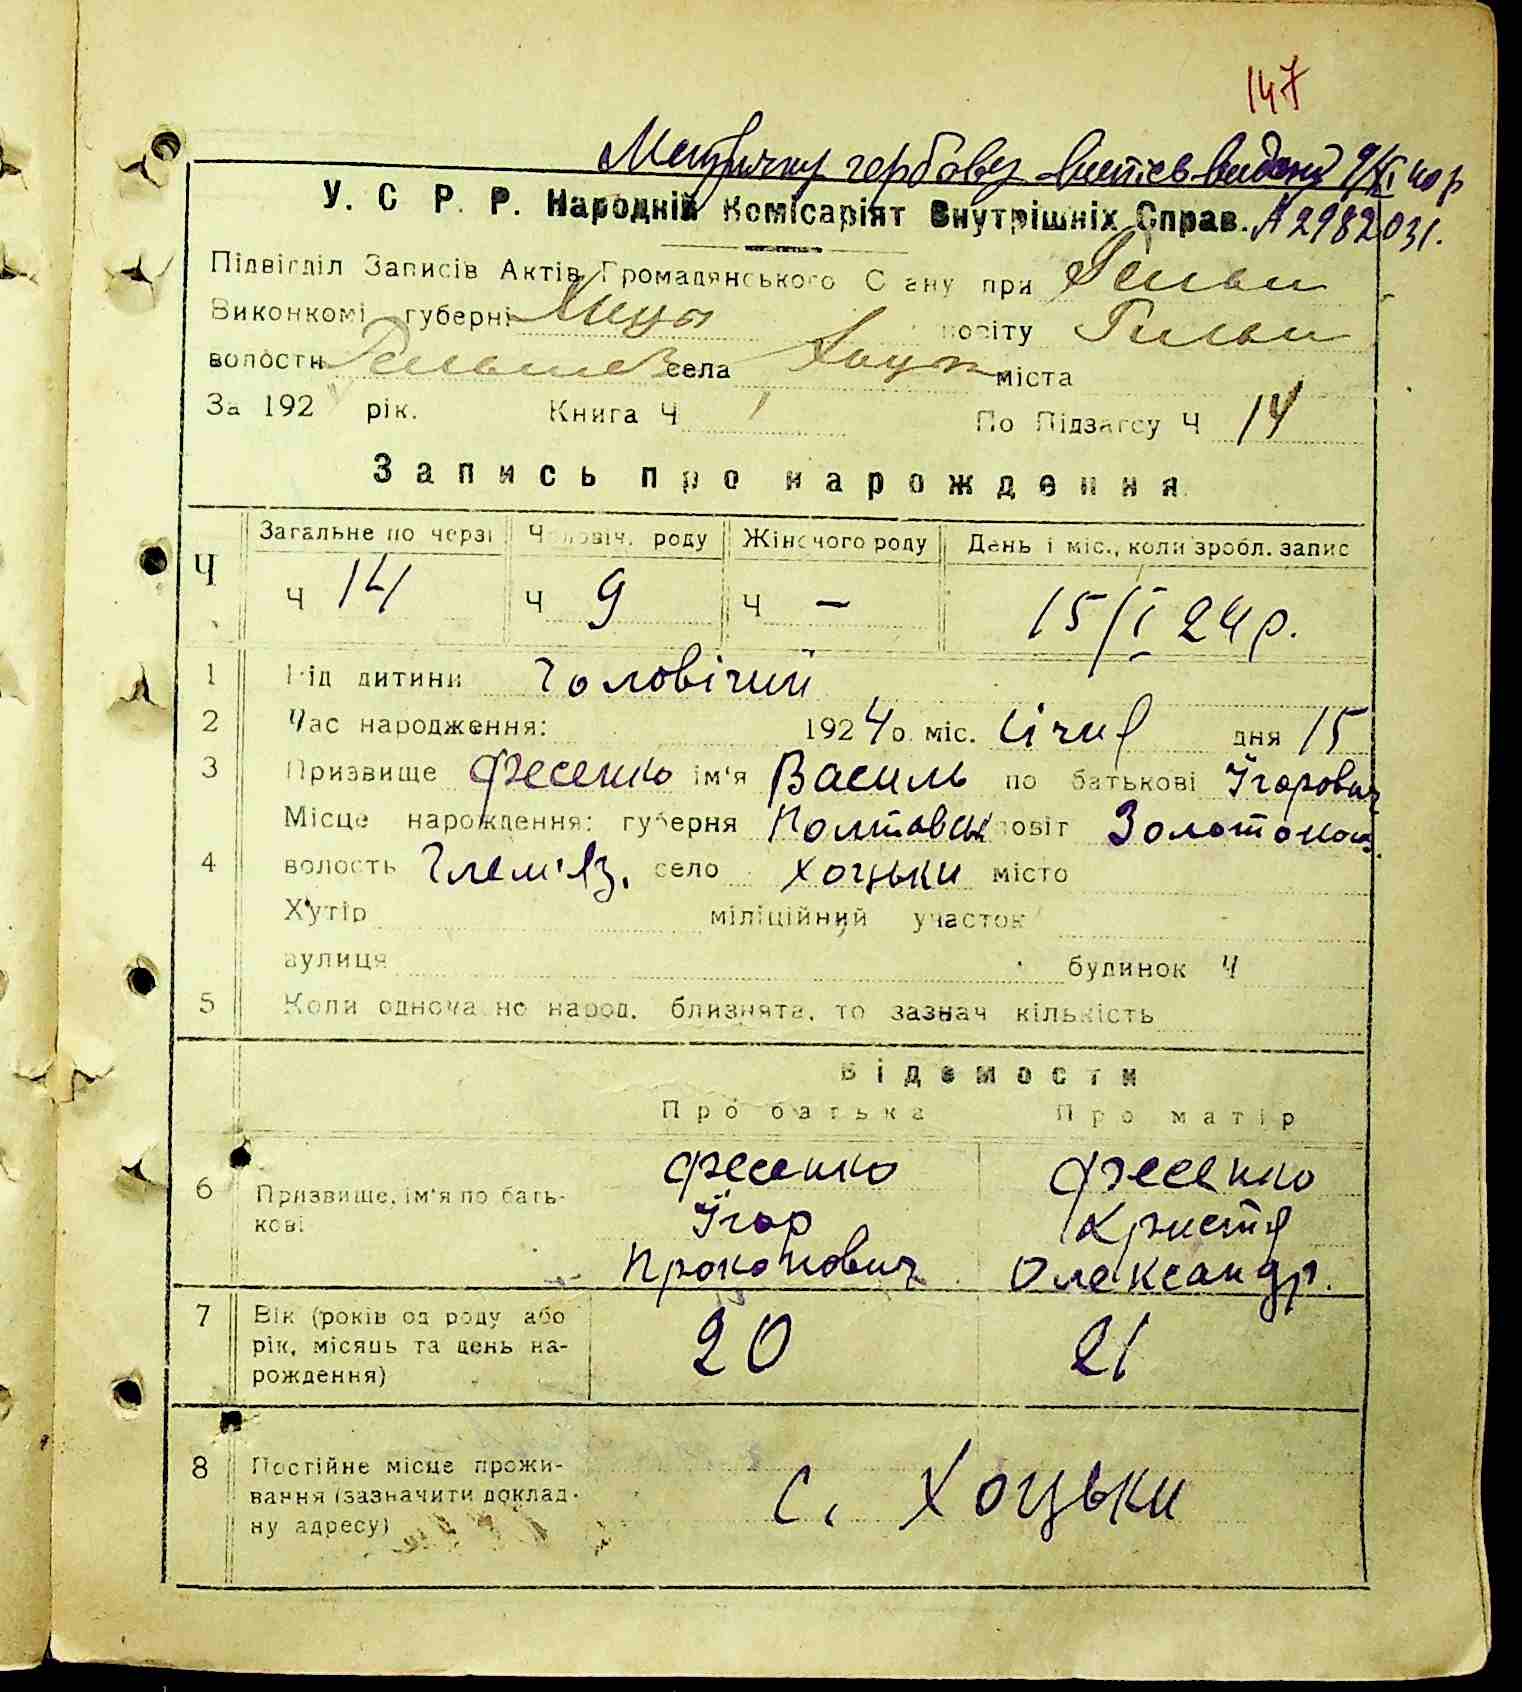 147
Метричку гербову видав 9/XI 40 р
У. С Р. Р. Народній Комісаріят Внутрішніх Справ. А 2982031.
Підвідділ Записів Актів Громадянського Стану при
Виконкомі губерні повіту
волости села міста
За 192 рік. Книга Ч По Підзагсу Ч 14
Запись про народження
Ч Загальне по черзі Чоловіч. роду Жіночого роду День і міс., коли зробл. запис
Ч 14 Ч 9 Ч — 15/I 24 р.
1 Рід дитини Чоловічий
2 Час народження: 1924 о міс. Січня дня 15
3 Призвище Фесенко ім'я Василь по батькові Їгорович
Місце нарождення: губерня Полтавськ повіт Золотонош.
4 волость Гельм'яз. село Хоцьки місто
Хутір міліційний участок
вулиця будинок Ч
5 Коли одночасно народ. близнята, то зазнач кількість
Відомости
Про батька Про матір
6 Призвище, ім'я по бать-
кові
Фесенко Фесенко
Їгор Христя
Прокопович Олександр.
7 Вік (років од роду або
рік, місяць та день на-
рождення)
20 21
8 Постійне місце прожи-
вання (зазначити доклад-
ну адресу)
с. Хоцьки